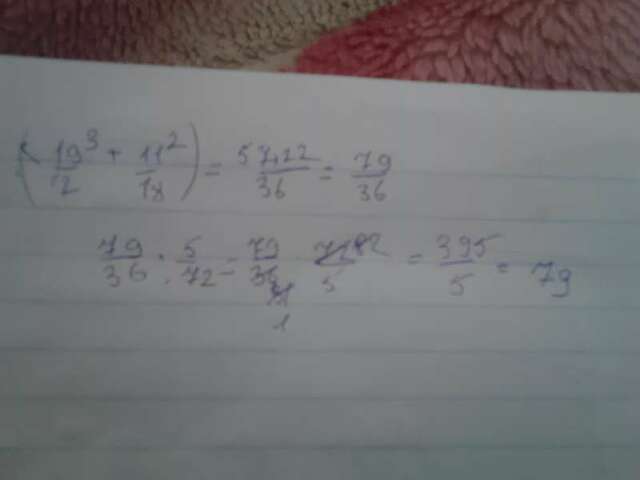 (19³/2 + 11²/18) = 57+22/36 = 79/36
79/36 : 5/72 = 79/36 72/5 = 395/5 = 79